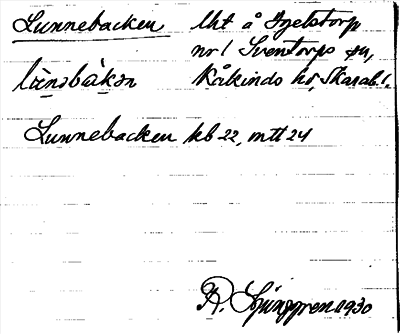 Lunnebacken Uht å Igelstorp
nr 1 Sventorps sn,
lùnəbàkən Kåkinds hd, Skarab. l.
Lunnebacken kb 22, mtl 24
R. Ljunggren 1930